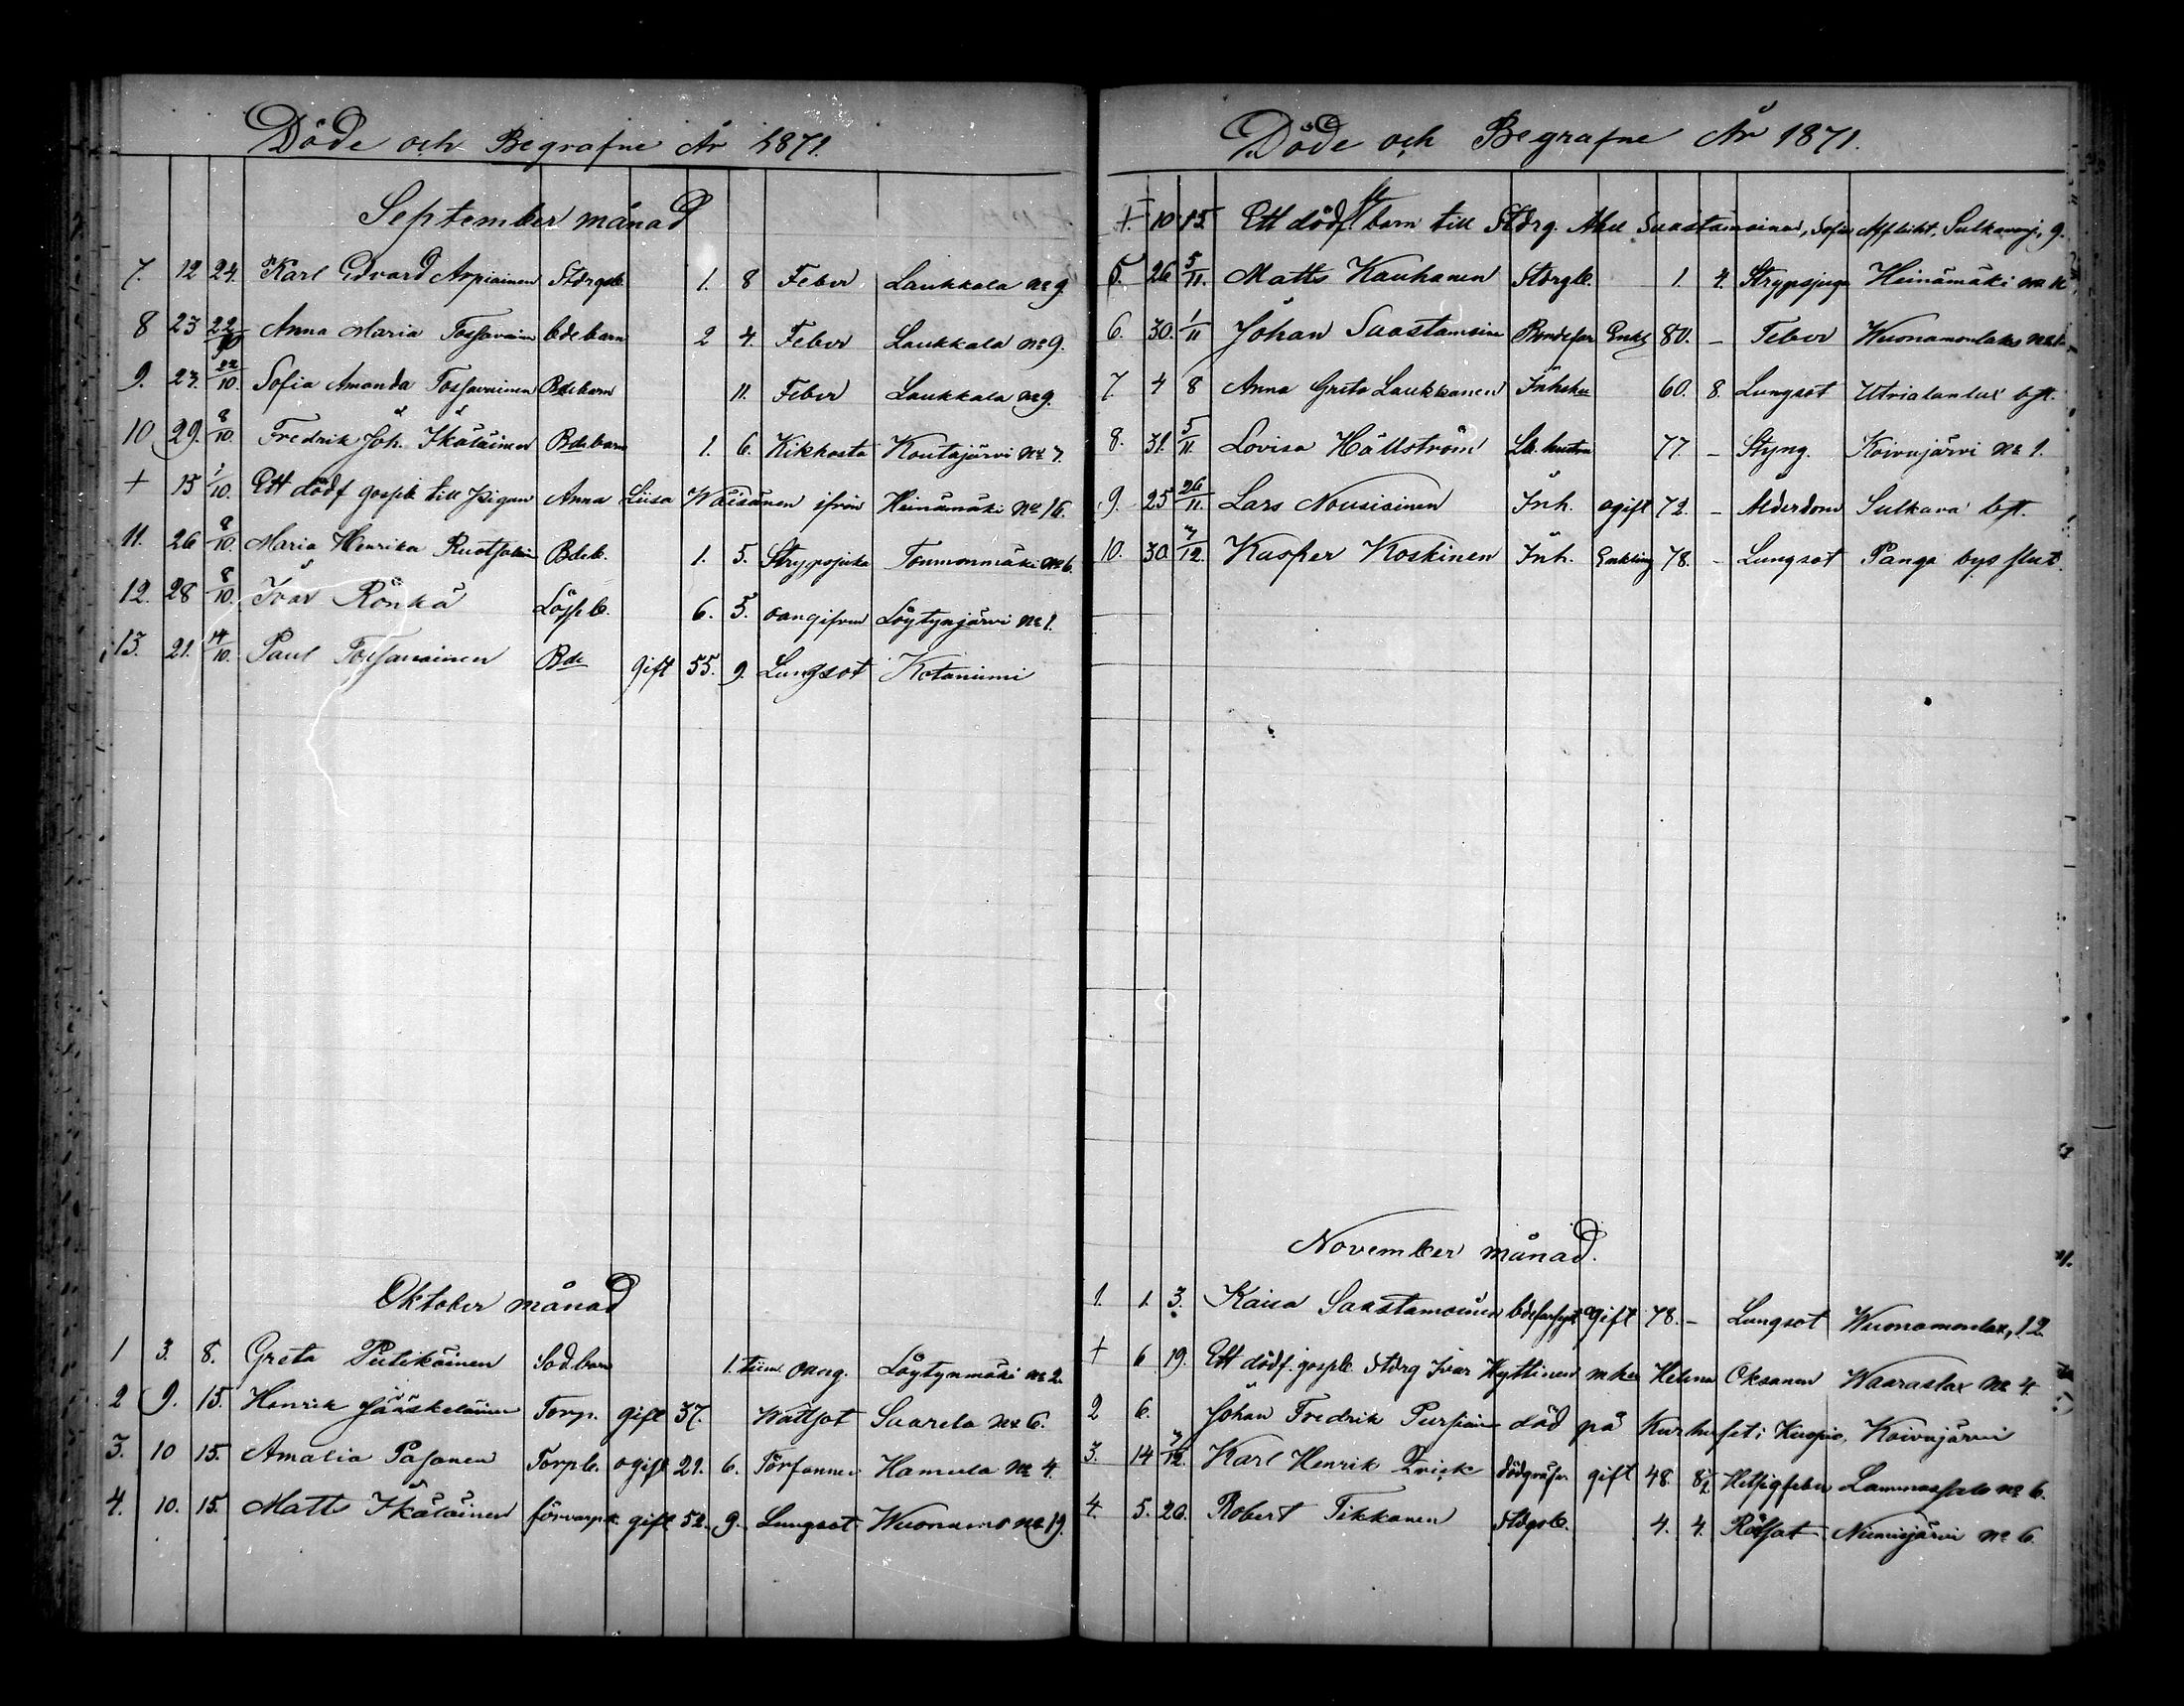 Döde och Begrafne År 1871.
September månad
7. 12 24. Karl Edvard Arpiainen Stdrgsb. 1. 8 Feber Laukkala No 9.
8 23 22/10 Anna Maria Tossavainen bdebarn 2 4. Feber Laukkala No 9.
9. 27. 22/10. Sofia Amanda Tossavainen Bdebarn 11. Feber Laukkala No 9.
10 29. 8/10. Fredrik Joh. Ikäläinen Bdebarn 1. 6. Kikhosta Koutajärvi No 7.
+ 15 1/10. Ett dödf gossb till Pigan Anna Liisa Wäisänen ifrån Heinämäki No 16.
11. 26 8/10. Maria Henrika Bdeb. 1. 5. Strypsjuka Tommonmäki No 6.
12. 28 8/10. Ivar Rönkä Lössb. 6. 5. oangifven Löytynjärvi No 1.
13. 21. 14/10. Paul Tossavainen Bde gift 55. 9. Lungsot Kotaniemi
Oktober månad
1 3. 8. Greta Putikäinen Sod.barn 1. tim oang. Löytynmäki No 2.
2 9. 15. Henrik Jääskeläinen Torp. gift 37. Wattsot Saarela No 6.
3. 10 15. Amalia Pasanen Torpb. ogift 21. 6. Hamula No 4.
4. 10. 15. Matts Ikäläinen gift 52. 9. Lungsot Wuonamo No 19.
Döde och Begrafne År 1871.
+. 10 15. Ett dödf barn till Stdrg. Abel Saastamoinen, Sofia Sulkavaj. 9.
5. 26 5/11. Matts Kauhanen Stdrgb. 1. 4. Strypsjuga Heinämäki No 16
6. 30. 1/11 Johan Saastamoinen Bondefar Enkl 80. – Feber Wuonamonlaks
7. 4 8 Anna Greta Laukkanen Inhshu 60. 8. Lungsot Utrialanlax bft.
8. 31. 5/11. Lovisa Hällström hustru 77. – Styng. Koivujärvi No 1.
9. 25 26/11. Lars Nousiainen Inh. ogift 72. – Ålderdom Sulkava bft.
10. 30. 3/12. Kasper Koskinen Inh. Enkling 78. – Lungsot Panga bys
November månad.
1. 1. 3. Kaisa Saastamoinen ogift 78. – Lungsot Wuonamonlax, 12.
+ 6 19. Ett dödf. gossb. Stdrg Ivar Hyttinen m hu Helena Oksanen Waaraslax No 4.
2 6. Johan Fredrik Pursiain död på Kurhuset i Kuopio, Koivujärvi
3. 14 3/12. Karl Henrik dödgräfre gift 48. 8½ Hetsigfeber Lammassalo No 6.
4. 5. 20. Robert Tikkanen Stdgsb. 4. 4. Rötsot Niinisjärvi No 6.